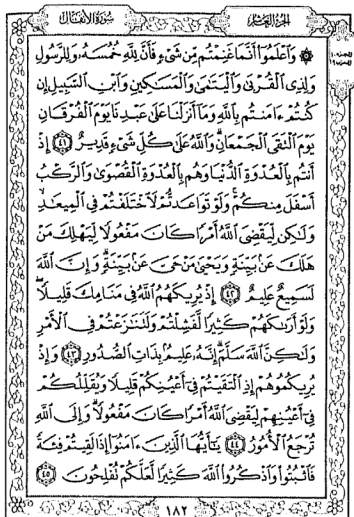 سُورَةُ الأَنفَالِ
الجُزْءُ العَاشِرُ
۞ وَٱعْلَمُوٓا۟ أَنَّمَا غَنِمْتُم مِّن شَىْءٍ فَأَنَّ لِلَّهِ خُمُسَهُۥ وَلِلرَّسُولِ
وَلِذِى ٱلْقُرْبَىٰ وَٱلْيَتَـٰمَىٰ وَٱلْمَسَـٰكِينِ وَٱبْنِ ٱلسَّبِيلِ إِن
كُنتُمْ ءَامَنتُم بِٱللَّهِ وَمَآ أَنزَلْنَا عَلَىٰ عَبْدِنَا يَوْمَ ٱلْفُرْقَانِ
يَوْمَ ٱلْتَقَى ٱلْجَمْعَانِ ۗ وَٱللَّهُ عَلَىٰ كُلِّ شَىْءٍ قَدِيرٌ ٤١ إِذْ
أَنتُم بِٱلْعُدْوَةِ ٱلدُّنْيَا وَهُم بِٱلْعُدْوَةِ ٱلْقُصْوَىٰ وَٱلرَّكْبُ
أَسْفَلَ مِنكُمْ ۚ وَلَوْ تَوَاعَدتُّمْ لَٱخْتَلَفْتُمْ فِى ٱلْمِيعَـٰدِ ۙ
وَلَـٰكِن لِّيَقْضِىَ ٱللَّهُ أَمْرًا كَانَ مَفْعُولًا لِّيَهْلِكَ مَنْ
هَلَكَ عَنۢ بَيِّنَةٍ وَيَحْيَىٰ مَنْ حَىَّ عَنۢ بَيِّنَةٍ ۗ وَإِنَّ ٱللَّهَ
لَسَمِيعٌ عَلِيمٌ ٤٢ إِذْ يُرِيكَهُمُ ٱللَّهُ فِى مَنَامِكَ قَلِيلًا ۖ
وَلَوْ أَرَىٰكَهُمْ كَثِيرًا لَّفَشِلْتُمْ وَلَتَنَـٰزَعْتُمْ فِى ٱلْأَمْرِ
وَلَـٰكِنَّ ٱللَّهَ سَلَّمَ ۗ إِنَّهُۥ عَلِيمٌۢ بِذَاتِ ٱلصُّدُورِ ٤٣ وَإِذْ
يُرِيكُمُوهُمْ إِذِ ٱلْتَقَيْتُمْ فِىٓ أَعْيُنِكُمْ قَلِيلًا وَيُقَلِّلُكُمْ
فِىٓ أَعْيُنِهِمْ لِيَقْضِىَ ٱللَّهُ أَمْرًا كَانَ مَفْعُولًا ۗ وَإِلَى ٱللَّهِ
تُرْجَعُ ٱلْأُمُورُ ٤٤ يَـٰٓأَيُّهَا ٱلَّذِينَ ءَامَنُوٓا۟ إِذَا لَقِيتُمْ فِئَةً
فَٱثْبُتُوا۟ وَٱذْكُرُوا۟ ٱللَّهَ كَثِيرًا لَّعَلَّكُمْ تُفْلِحُونَ ٤٥
١٨٢